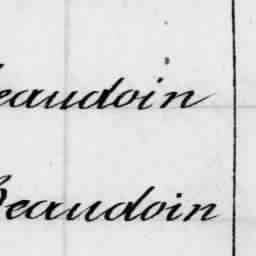 eaudoin
Beaudoin